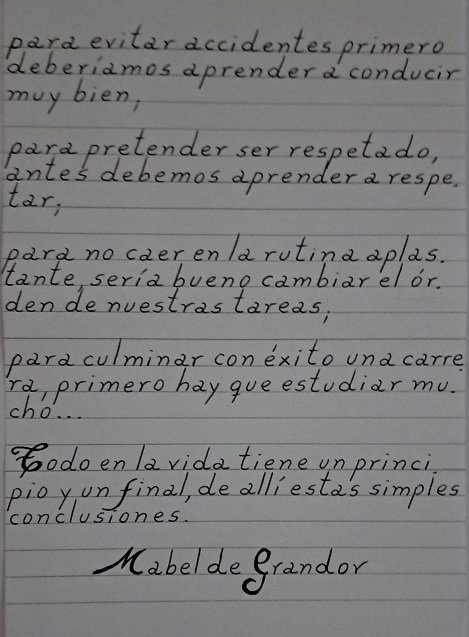 para evitar accidentes primero
deberíamos aprender a conducir
muy bien;
para pretender ser respetado,
antes debemos aprender a respe.
tar;
para no caer en la rutina aplas.
tante, sería bueno cambiar el ór.
den de nuestras tareas;
para culminar con éxito una carre.
ra, primero hay que estudiar mu.
cho...
Todo en la vida tiene un princi.
pio y un final, de allí estas simples
conclusiones.
Mabel de Grandor